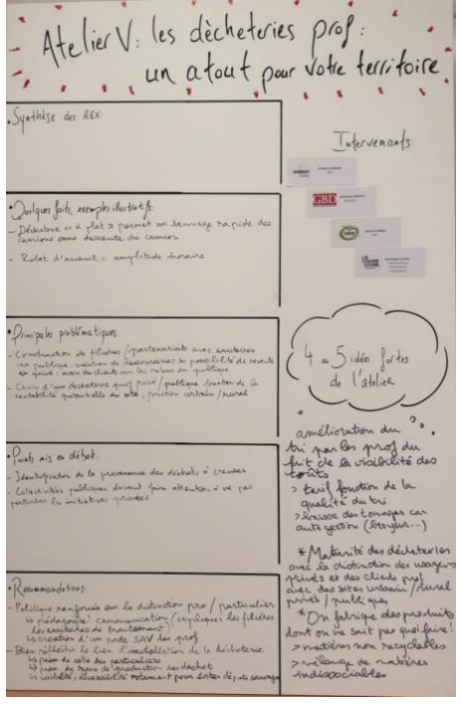 Atelier V: les dècheteries prof:
un atout pour votre territoire
• Synthèse des REX:
Intervenants:
GBD
• Quelques faits, exemples illustratifs:
- Déchèterie « à plat » permet un bennage rapide des
camions sans descente du camion
- Robot d'accueil = amplitude horaire
• Principales problématiques:
- Construction de filières / partenariats avec
publique
en privé
- Choix d'une déchèterie prof privé / publique fonction de la
rentabilité du site, urbain / rural
4 ou 5 idées fortes
de l'atelier
• Points mis en débat:
- Identification de la provenance des déchets à creuser
- Collectivités publiques doivent faire attention à ne pas
perturber les initiatives privées
* amélioration du
tri par les prof du
fait de la visibilité des
coûts
> tarif fonction de la
qualité du tri
> baisse des tonnages car
auto gestion (broyeur...)
* Maturité des déchèteries
avec la distinction des usagers
privés et des clients prof
avec des sites urbain / rural
privés / publiques
* On fabrique des produits
dont on ne sait pas quoi faire!
> matières non recyclables
> mélange de matières
indissociables
• Recommandations:
- Politique renforcée sur la distinction pro / particulier
↳ pédagogie / communication / expliquer les filières
les de traitement
↳ création d'un SAV des prof
- Bien réfléchir le lieu d'installation de la déchèterie
↳ près de celle des particuliers
↳ près de de production des déchets
↳ visibilité, accessibilité notamment pour éviter dépôts sauvages